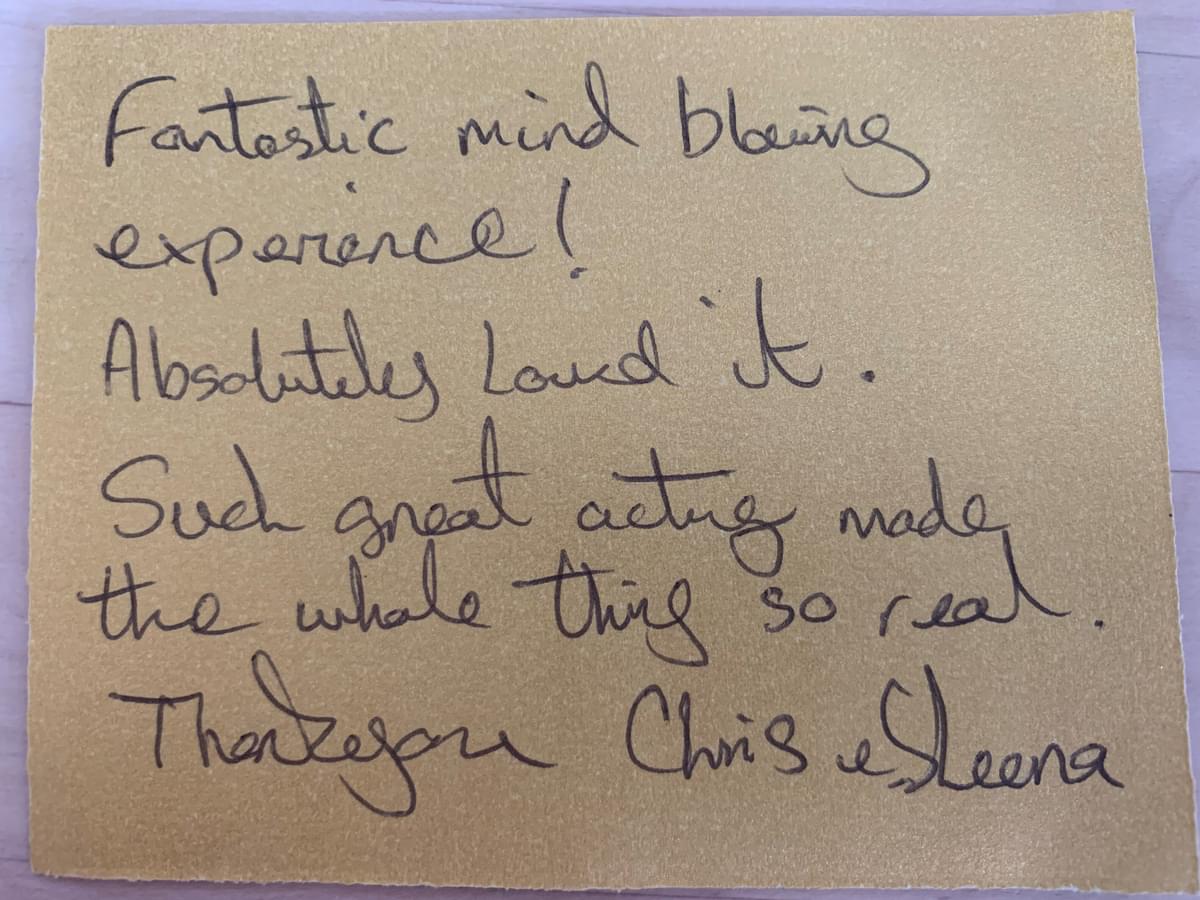 Fantastic mind blowing
experience!
Absolutely Loved it.
Such great acting made
the whole thing so real.
Thankyou Chris & Sheena